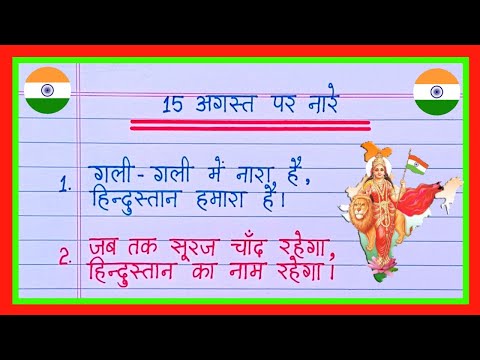 15 अगस्त पर नारे
1. गली-गली में नारा है,
हिन्दुस्तान हमारा है।
2. जब तक सूरज चाँद रहेगा,
हिन्दुस्तान का नाम रहेगा।